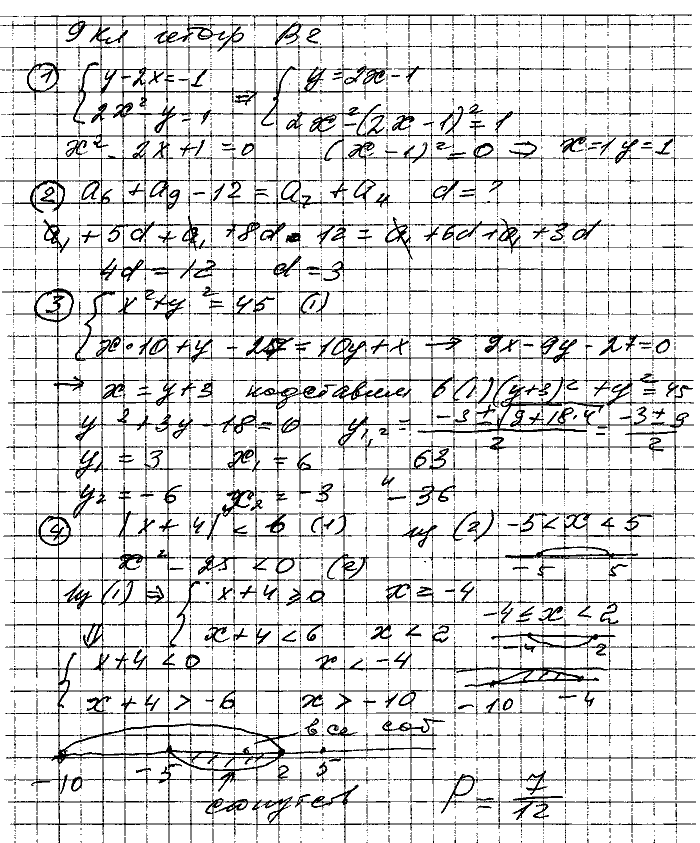 9 кл В2
① { y-2x=-1 ⇒ { y=2x-1
2x²-y=1 2x²-(2x-1)²=1
x²-2x+1=0 (x-1)²=0 ⇒ x=1 y=1
② a₆+a₉-12=a₇+a₄ d=?
a₁+5d+a₁+8d-12=a₁+6d+a₁+3d
4d=12 d=3
③ { x²+y²=45 (1)
x·10+y-27=10y+x → 9x-9y-27=0
→ x=y+3 подставим в (1) (y+3)²+y²=45
y²+3y-18=0 y₁,₂=(-3±√(9+18·4))/2=(-3±9)/2
y₁=3 x₁=6 63
y₂=-6 x₂=-3 и -36
④ |x+4|<6 (1) из (2) -5<x<5
x²-25<0 (2) -5 5
из (1) ⇒ { x+4≥0 x≥-4 -4≤x<2
⇓ x+4<6 x<2 -4 2
{ x+4<0 x<-4
x+4>-6 x>-10 -10 -4
все соб
-10 -5 ↑ 2 5
P=7/12